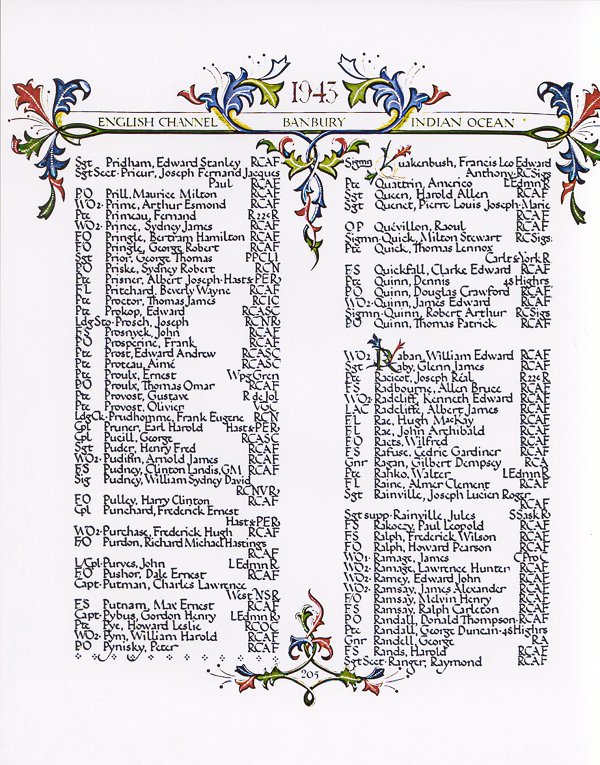 1943
ENGLISH CHANNEL BANBURY INDIAN OCEAN
Sgt Pridham, Edward Stanley RCAF
Sgt Sect · Prieur, Joseph Fernand Jacques
Paul RCAF
PO Prill, Maurice Milton RCAF
WO2 · Prime, Arthur Esmond RCAF
Pte Primeau, Fernand R22eR
WO2 · Prince, Sydney James RCAF
FO Pringle, Bertram Hamilton RCAF
FO Pringle, George Robert RCAF
Sgt Prior, George Thomas PPCLI
PO Priske, Sydney Robert RCN
Pte Prisner, Albert Joseph · Hast&PER
FL Pritchard, Beverly Wayne RCAF
Pte Proctor, Thomas James RCIC
Pte Prokop, Edward RCASC
LdgSto · Prosch, Joseph RCNR
FS Prosnyck, John RCAF
PO Prosperine, Frank RCAF
Pte Prost, Edward Andrew RCASC
Pte Proteau, Aimé RCASC
Pte Proulx, Ernest WpgGren
PO Proulx, Thomas Omar RCAF
Pte Provost, Gustave R de Jol
Pte Provost, Olivier VGC
LdgCk · Prudhomme, Frank Eugene RCN
Cpl Pruner, Earl Harold Hast&PER
Cpl Pucill, George RCASC
Sgt Puder, Henry Fred RCAF
WO2 · Pudifin, Arnold James RCAF
FS Pudney, Clinton Landis, GM RCAF
Sig Pudney, William Sydney David
RCNVR
FO Pulley, Harry Clinton RCAF
Cpl Punchard, Frederick Ernest
Hast&PER
WO2 · Purchase, Frederick Hugh RCAF
FO Purdon, Richard Michael Hastings
RCAF
L/Cpl · Purves, John LEdmnR
FO Pushor, Dale Ernest RCAF
Capt · Putman, Charles Lawrence
WestNSR
FS Putnam, Max Ernest RCAF
Capt · Pybus, Gordon Henry LEdmnR
Pte Pye, Howard Leslie RCOC
WO2 · Pym, William Harold RCAF
PO Pynisky, Peter RCAF
Sigmn Quakenbush, Francis Leo Edward
Anthony · RCSigs
Pte Quattrin, Americo LEdmnR
Sgt Queen, Harold Allen RCAF
Sgt Quenet, Pierre Louis Joseph · Marie
RCAF
OP Quévillon, Raoul RCAF
Sigmn · Quick, Milton Stewart RCSigs
Pte Quick, Thomas Lennox
Carl&YorkR
FS Quickfall, Clarke Edward RCAF
Pte Quinn, Dennis 48Highrs
PO Quinn, Douglas Crawford RCAF
WO2 · Quinn, James Edward RCAF
Sigmn · Quinn, Robert Arthur RCSigs
PO Quinn, Thomas Patrick RCAF
WO2 Raban, William Edward RCAF
Sgt Raby, Glenn James RCAF
Pte Racicot, Joseph Réal R22eR
FS Radbourne, Allen Bruce RCAF
WO2 Radcliffe, Kenneth Edward RCAF
LAC Radcliffe, Albert James RCAF
FL Rae, Hugh MacKay RCAF
FL Rae, John Archibald RCAF
FO Raets, Wilfred RCAF
FS Rafuse, Cedric Gardiner RCAF
Gnr Ragan, Gilbert Dempsey RCA
Pte Rahko, Walter LEdmnR
FL Raine, Almer Clement RCAF
Sgt Rainville, Joseph Lucien Roger
RCAF
Sgt supp · Rainville, Jules SSaskR
FS Rakoczy, Paul Leopold RCAF
FS Ralph, Frederick Wilson RCAF
FO Ralph, Howard Pearson RCAF
WO1 · Ramage, James CProC
WO2 · Ramage, Lawrence Hunter RCAF
WO2 · Ramey, Edward John RCAF
WO2 · Ramsay, James Alexander RCAF
FO Ramsay, Melvin Henry RCAF
FS Ramsay, Ralph Carleton RCAF
PO Randall, Donald Thompson · RCAF
Pte Randall, George Duncan · 48Highrs
Gnr Randell, George RA
FS Rands, Harold RCAF
Sgt Sect · Ranger, Raymond RCAF
205